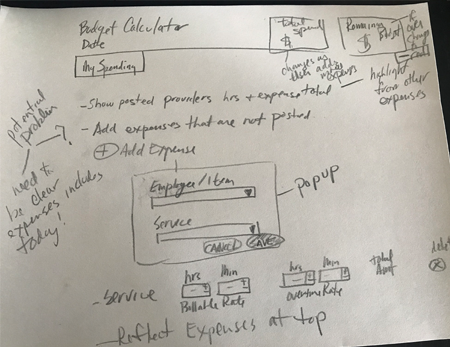 Budget Calculator
Date
total
Spend
$
Remaining
$
My Spending
changes as
expenses
highlight
from other
expenses
potential
problem
?
- Show posted providers hrs + expense total
- Add expenses that are not posted
+ Add Expense
need to
be clear
expenses includes
today!
Employee/Item
Service
CANCEL SAVE
popup
- Service
hrs Min
Billable Rate
hrs Min
overtime Rate
total
delete
X
- Reflect Expenses at top